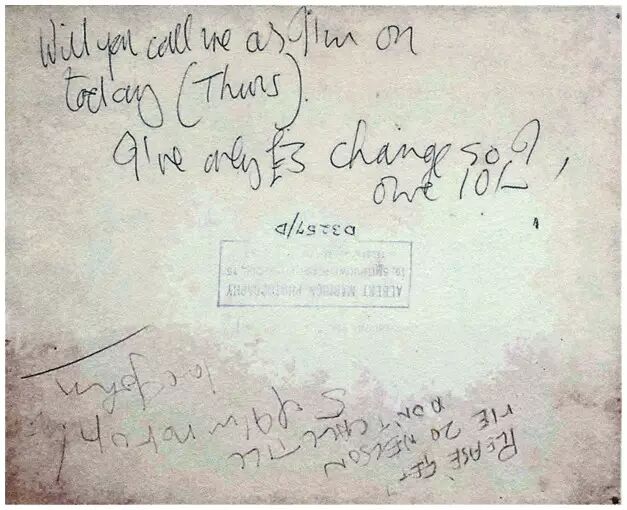 Will you call me as I'm on
today (Thurs).
I've only £3 change so I
owe 10/-
D3257/D
ALBERT MARRION PHOTOGRAPHY
PLEASE GET
ME 20 NELSON
DON'T CALL TILL
5 not up!
love John